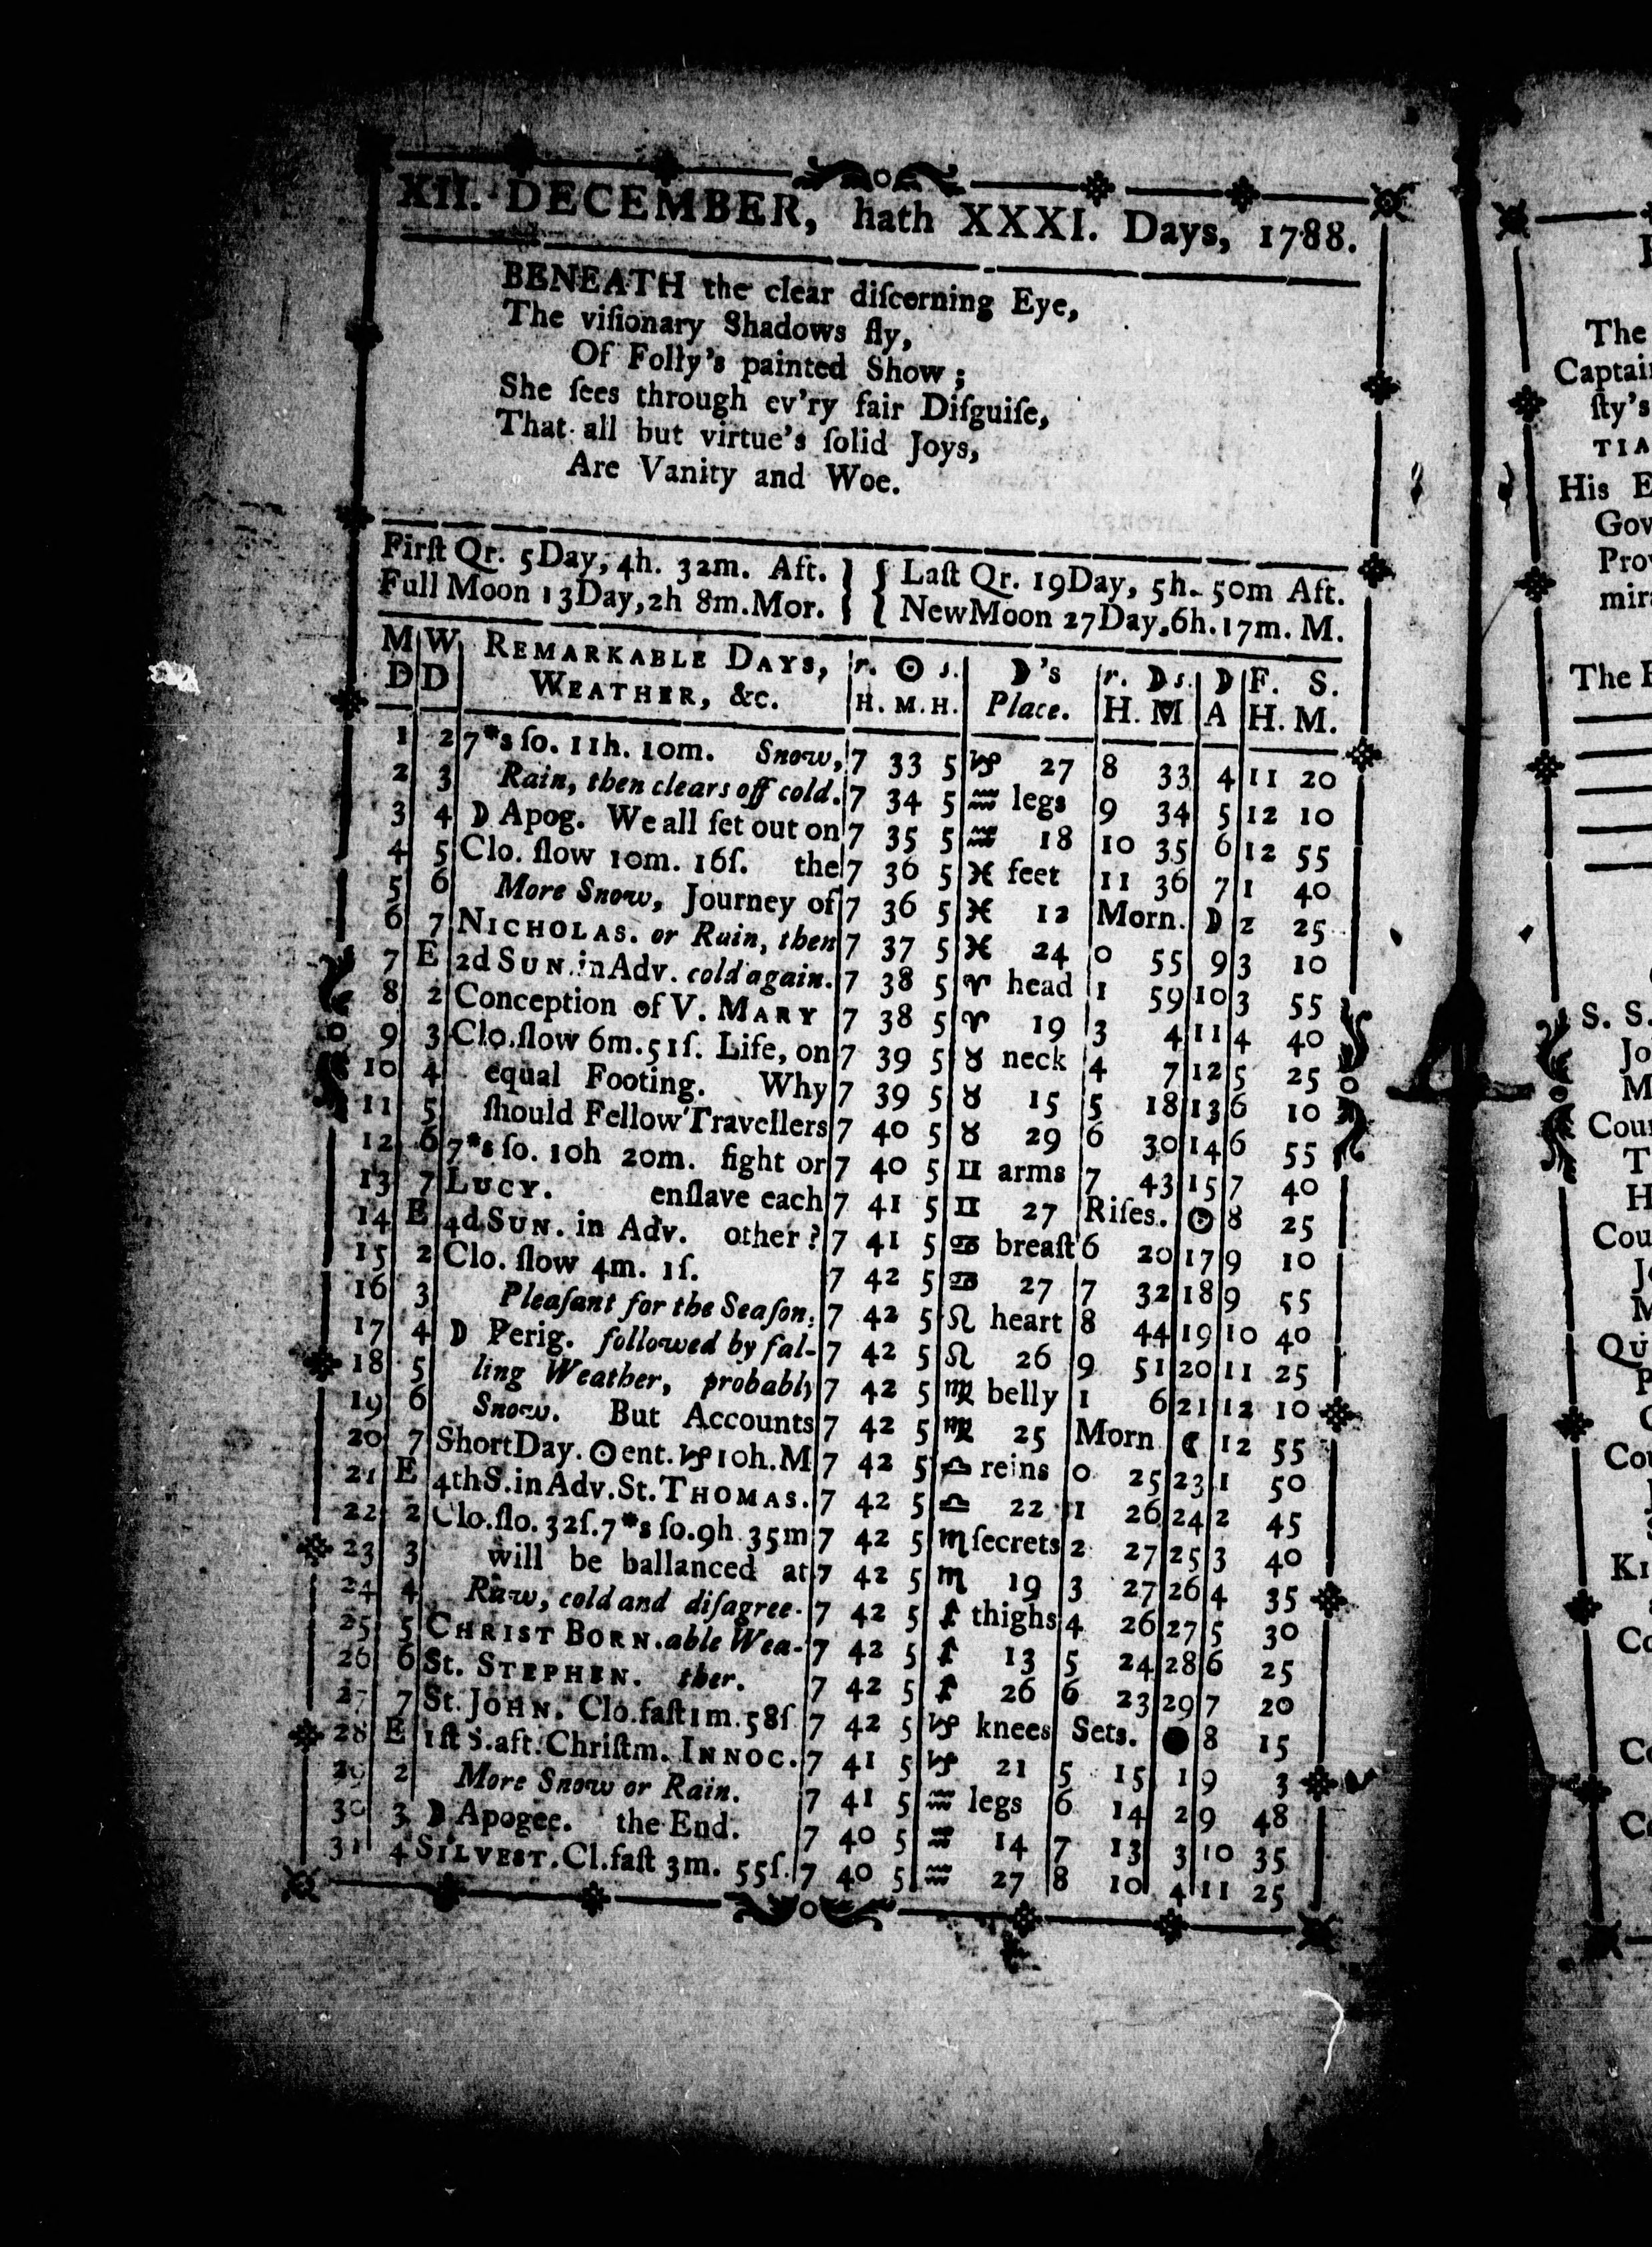 XII. DECEMBER, hath XXXI. Days, 1788.
BENEATH the clear diſcerning Eye,
The viſionary Shadows fly,
Of Folly's painted Show;
She ſees through ev'ry fair Diſguiſe,
That all but virtue's ſolid Joys,
Are Vanity and Woe.
Firſt Qr. 5Day, 4h. 32m. Aft. } { Laſt Qr. 19Day, 5h. 50m Aft.
Full Moon 13Day, 2h 8m. Mor. } { NewMoon 27Day, 6h. 17m. M.
M W REMARKABLE DAYS, r. ☉ s. ☽'s r. ☽ s. ☽ F. S.
D D WEATHER, &c. H. M. H. Place. H. M A H. M.
1 2 7*s ſo. 11h. 10m. Snow, 7 33 5 ♑ 27 8 33 4 11 20
2 3 Rain, then clears off cold. 7 34 5 ♒ legs 9 34 5 12 10
3 4 ☽ Apog. We all ſet out on 7 35 5 ♒ 18 10 35 6 12 55
4 5 Clo. ſlow 10m. 16ſ. the 7 36 5 ♓ feet 11 36 7 1 40
5 6 More Snow, Journey of 7 36 5 ♓ 12 Morn. ☽ 2 25
6 7 NICHOLAS. or Rain, then 7 37 5 ♓ 24 0 55 9 3 10
7 E 2d SUN. in Adv. cold again. 7 38 5 ♈ head 1 59 10 3 55
8 2 Conception of V. MARY 7 38 5 ♈ 19 3 4 11 4 40
9 3 Clo. ſlow 6m. 51ſ. Life, on 7 39 5 ♉ neck 4 7 12 5 25
10 4 equal Footing. Why 7 39 5 ♉ 15 5 18 13 6 10
11 5 ſhould Fellow Travellers 7 40 5 ♉ 29 6 30 14 6 55
12 6 7*s ſo. 10h 20m. fight or 7 40 5 ♊ arms 7 43 15 7 40
13 7 LUCY. enſlave each 7 41 5 ♊ 27 Riſes. ☉ 8 25
14 E 4d SUN. in Adv. other? 7 41 5 ♋ breaſt 6 20 17 9 10
15 2 Clo. ſlow 4m. 1ſ. 7 42 5 ♋ 27 7 32 18 9 55
16 3 Pleaſant for the Seaſon, 7 42 5 ♌ heart 8 44 19 10 40
17 4 ☽ Perig. followed by fal- 7 42 5 ♌ 26 9 51 20 11 25
18 5 ling Weather, probably 7 42 5 ♍ belly 1 6 21 12 10
19 6 Snow. But Accounts 7 42 5 ♍ 25 Morn ☾ 12 55
20 7 ShortDay. ☉ ent. ♑ 10h. M 7 42 5 ♎ reins 0 25 23 1 50
21 E 4thS. in Adv. St. THOMAS. 7 42 5 ♎ 22 1 26 24 2 45
22 2 Clo. ſlo. 32ſ. 7*s ſo. 9h 35m 7 42 5 ♏ ſecrets 2 27 25 3 40
23 3 will be ballanced at 7 42 5 ♏ 19 3 27 26 4 35
24 4 Raw, cold and diſagree- 7 42 5 ♐ thighs 4 26 27 5 30
25 5 CHRIST BORN. able Wea- 7 42 5 ♐ 13 5 24 28 6 25
26 6 St. STEPHEN. ther. 7 42 5 ♐ 26 6 23 29 7 20
27 7 St. JOHN. Clo. faſt 1m. 58ſ 7 42 5 ♑ knees Sets. ● 8 15
28 E 1ſt S. aft. Chriſtm. INNOC. 7 41 5 ♑ 21 5 15 1 9 3
29 2 More Snow or Rain. 7 41 5 ♒ legs 6 14 2 9 48
30 3 ☽ Apogee. the End. 7 40 5 ♒ 14 7 13 3 10 35
31 4 SILVEST. Cl. faſt 3m. 55ſ. 7 40 5 ♒ 27 8 10 4 11 25
The
Captai
ſty's
TIA
His E
Gov
Prov
mir
The
S. S.
Jo
M
Cou
T
H
Cou
J
M
QU
P
Co
KI
Co
Co
Co